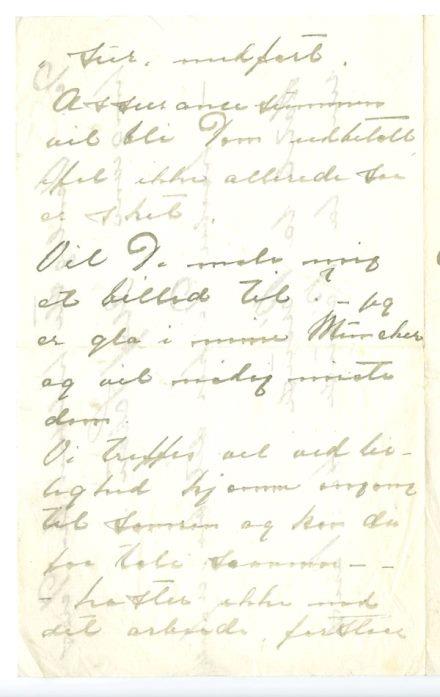 sur. medfort.
Assurancesummen
vil bli Dem udbetalt
ifal ikke allerede saa
er sket.
Vil De male mig
et billed til? – jeg
er gla i mine Müncher
og vil nødig miste
dem.
Vi treffes vel ved lei-
lighed hjemme engang
til somren og kan da
faa tale sammen – –
– haster ikke med
det arbeide, forstaar